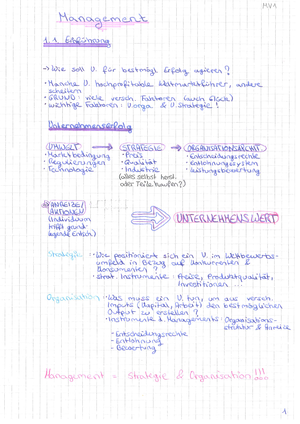 MV1
Management
1.1. Einführung
→ Wie soll U. für bestmögl. Erfolg agieren?
• Manche U. hochprofitable Weltmarktführer, andere
scheitern
• GRUND: viele versch. Faktoren (auch Glück)
• wichtige Faktoren: U.orga & U.strategie!
Unternehmenserfolg
UMWELT → STRATEGIE → ORGANISATIONSARCHIT.
• Marktbedingung • Preis • Entscheidungsrechte
• Regulierungen • Qualität • Entlohnungssystem
• Technologie • Industrie • Leistungsbewertung
(alles selbst herst.
oder Teile kaufen?)
ANREIZE/
AKTIONEN
(Individuum
trifft grund-
legende Entsch.)
⇒ UNTERNEHMENSWERT
Strategie: • Wie positioniert sich ein U. im Wettbewerbs-
umfeld in Bezug auf Konkurrenten &
Konsumenten?
• strat. Instrumente: Preise, Produktqualität,
Investitionen ...
Organisation: • Was muss ein U. tun, um aus versch.
Inputs (Kapital, Arbeit) den bestmöglichen
Output zu erstellen?
• Instrumente d. Managements: Organisations-
struktur &
- Entscheidungsrechte
- Entlohnung
- Bewertung
Management = Strategie & Organisation!!!
1